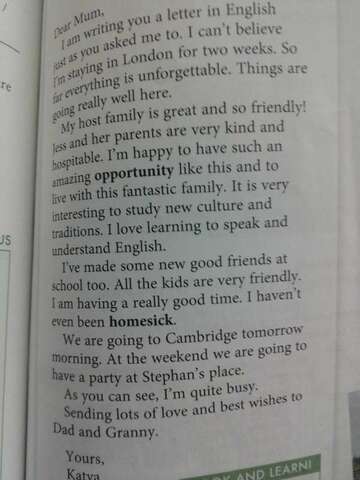 Dear Mum,
I am writing you a letter in English
just as you asked me to. I can't believe
I'm staying in London for two weeks. So
far everything is unforgettable. Things are
going really well here.
My host family is great and so friendly!
Jess and her parents are very kind and
hospitable. I'm happy to have such an
amazing opportunity like this and to
live with this fantastic family. It is very
interesting to study new culture and
traditions. I love learning to speak and
understand English.
I've made some new good friends at
school too. All the kids are very friendly.
I am having a really good time. I haven't
even been homesick.
We are going to Cambridge tomorrow
morning. At the weekend we are going to
have a party at Stephan's place.
As you can see, I'm quite busy.
Sending lots of love and best wishes to
Dad and Granny.
Yours,
Katya
AND LEARN!